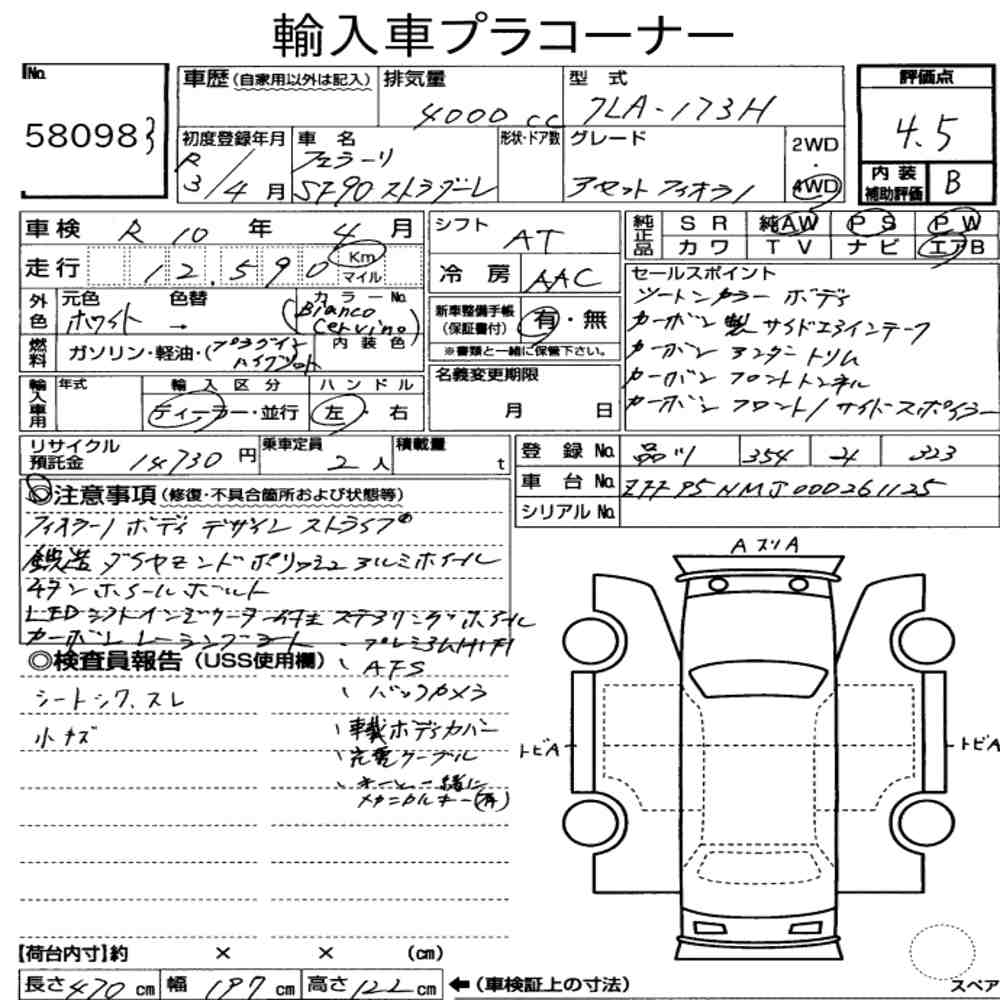 輸入車プラコーナー
No.
58098
車歴(自家用以外は記入)
排気量
4000 cc
型式
7LA-173H
評価点
4.5
内装
補助評価
B
初度登録年月
R
3/4月
車名
フェラーリ
SF90 ストラダーレ
形状・ドア数
グレード
アセット フィオラノ
2WD
・
4WD
車検 R 10 年 4 月
走行 12,590 Km
マイル
シフト AT
冷房 AAC
純正品 SR 純AW PS PW
カワ TV ナビ エアB
外色 元色 色替 カラーNo.
ホワイト → (Bianco
Cervino)
内装色
燃料 ガソリン・軽油・(プラグイン
ハイブリット)
新車整備手帳
(保証書付)
有・無
※書類と一緒に保管下さい。
セールスポイント
ツートンカラー ボディ
カーボン製 サイドエアインテーク
カーボン アンダー トリム
カーボン フロントトンネル
カーボン フロント/サイドスポイラー
輸入車用 年式 輸入区分 ハンドル
ディーラー・並行 左・右
名義変更期限
月 日
リサイクル
預託金 14730 円
乗車定員
2人
積載量
t
登録No. 品川 354 ソ 323
車台No. ZFF95NMJ000261125
シリアルNo.
◎注意事項(修復・不具合箇所および状態等)
フィオラーノ ボディ デザイン ストライプ
鍛造 ダイヤモンドポリッシュ アルミホイール
チタン ホイールボルト
LEDシフトインジケーター付 ステアリングホイール
カーボン レーシングシート
、プレミアムHIFI
◎検査員報告(USS使用欄)
、AFS
シートシワ、スレ
、バックカメラ
小キズ
、車載ボディカバー
、充電ケーブル
、キーと一緒に
メカニカルキー(有)
AズリA
トビA
トビA
【荷台内寸】約 × × (cm)
長さ 470 cm 幅 197 cm 高さ 122 cm ←(車検証上の寸法)
スペア